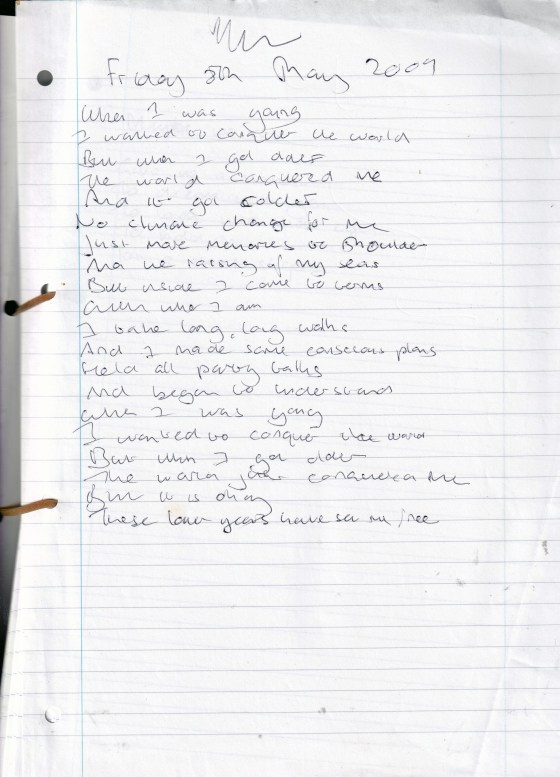 Friday 5th May 2009
When I was young
I wanted to conquer the world
But when I got older
The world conquered me
And it got colder
No climate change for me
Just more memories to shoulder
And the raising of my seas
But inside I came to terms
With who I am
I take long, long walks
And I made some conscious plans
Held all party talks
And began to understand
When I was young
I wanted to conquer the world
But when I got older
The world conquered me
But it is okay
These later years have set me free